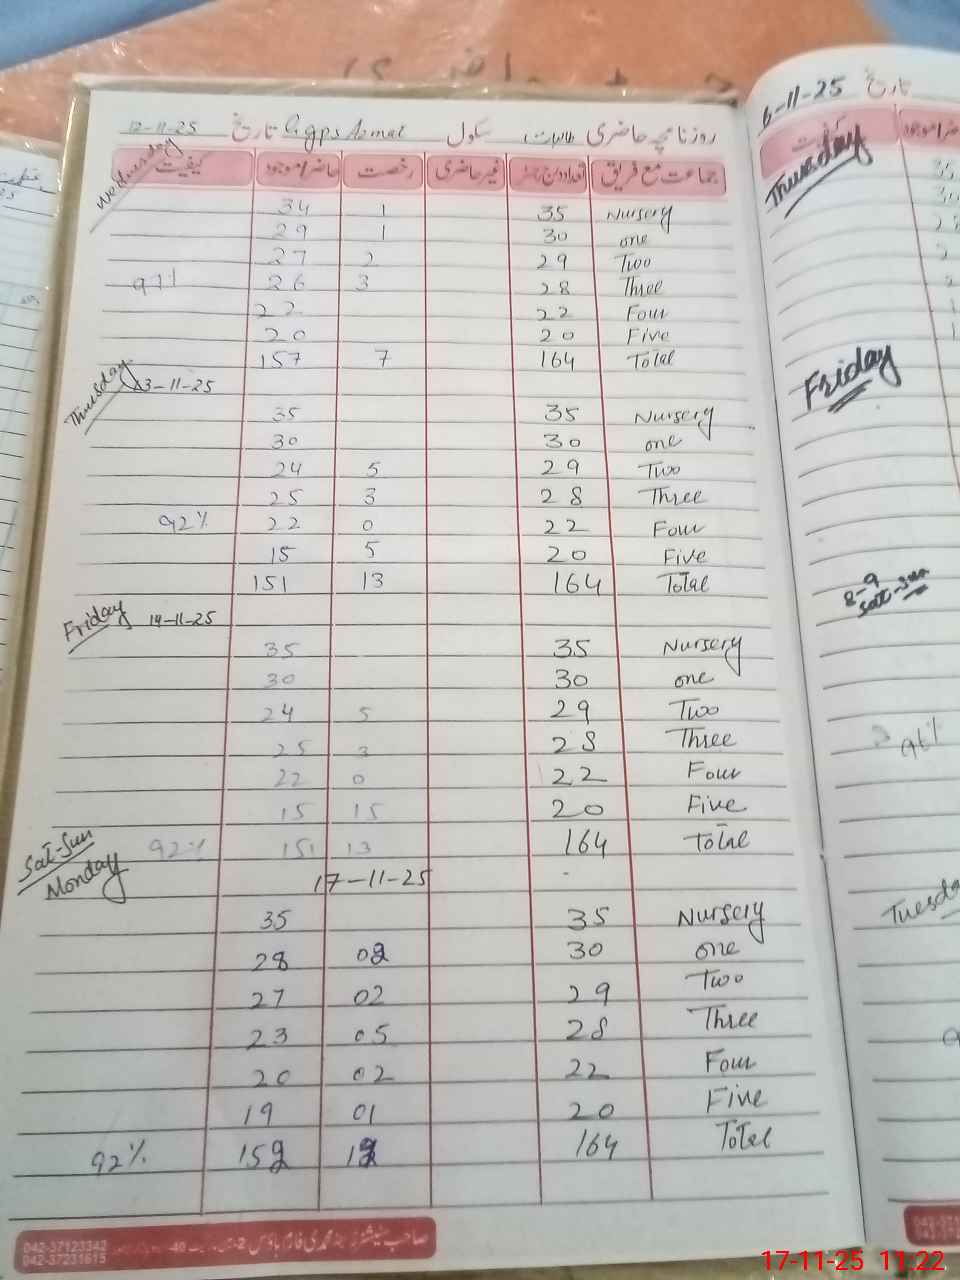 روزنامچہ حاضری طالبات سکول G.gps Azmat تاریخ 12-11-25
Wednesday
جماعت مع فریق تعداد درج رجسٹر غیر حاضری رخصت حاضر/موجود کیفیت
34 1 35 Nursery
29 1 30 one
27 2 29 Two
97% 26 3 28 Three
22 22 Four
20 20 Five
157 7 164 Total
Thursday 13-11-25
35 35 Nursery
30 30 one
24 5 29 Two
25 3 28 Three
92% 22 0 22 Four
15 5 20 Five
151 13 164 Total
Friday 14-11-25
35 35 Nursery
30 30 one
24 5 29 Two
25 3 28 Three
22 0 22 Four
15 15 20 Five
92% 151 13 164 Total
Sat-Sun
Monday 17-11-25
35 35 Nursery
28 02 30 one
27 02 29 Two
23 05 28 Three
20 02 22 Four
19 01 20 Five
92% 152 12 164 Total
042-37123342
042-37231615
تاریخ 6-11-25
کیفیت
Thursday
Friday
8-9
Sat-Sun
96%
Tuesday
17-11-25 11:22